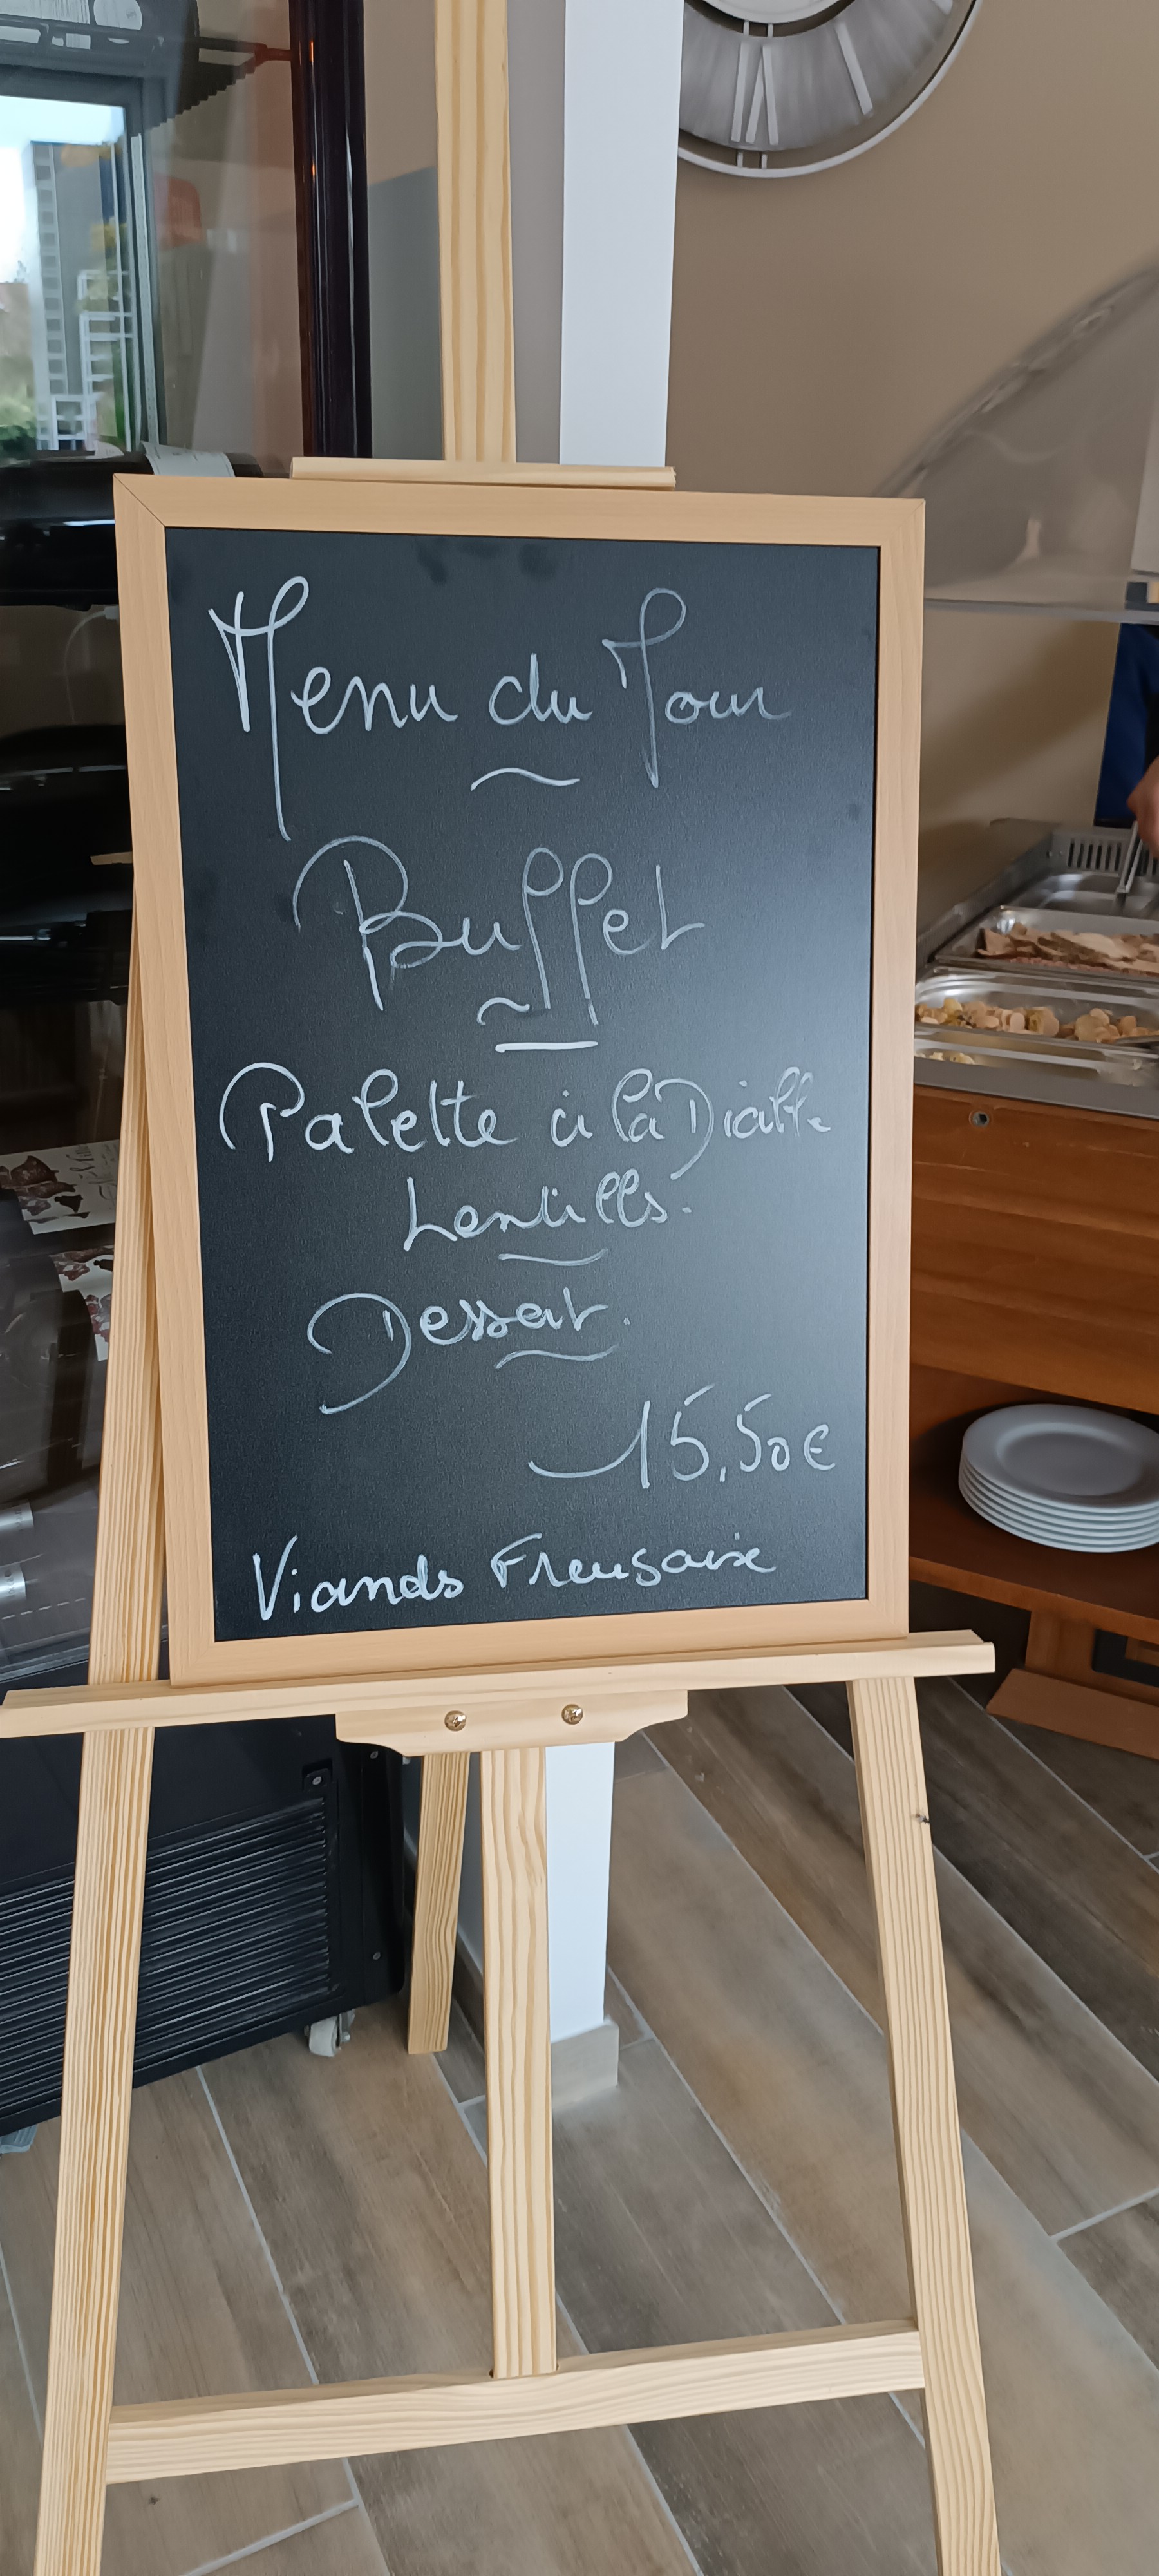 Menu du Jour
Buffet
Palette à la Diable
Lentilles.
Dessert.
15,50€
Viandes Française